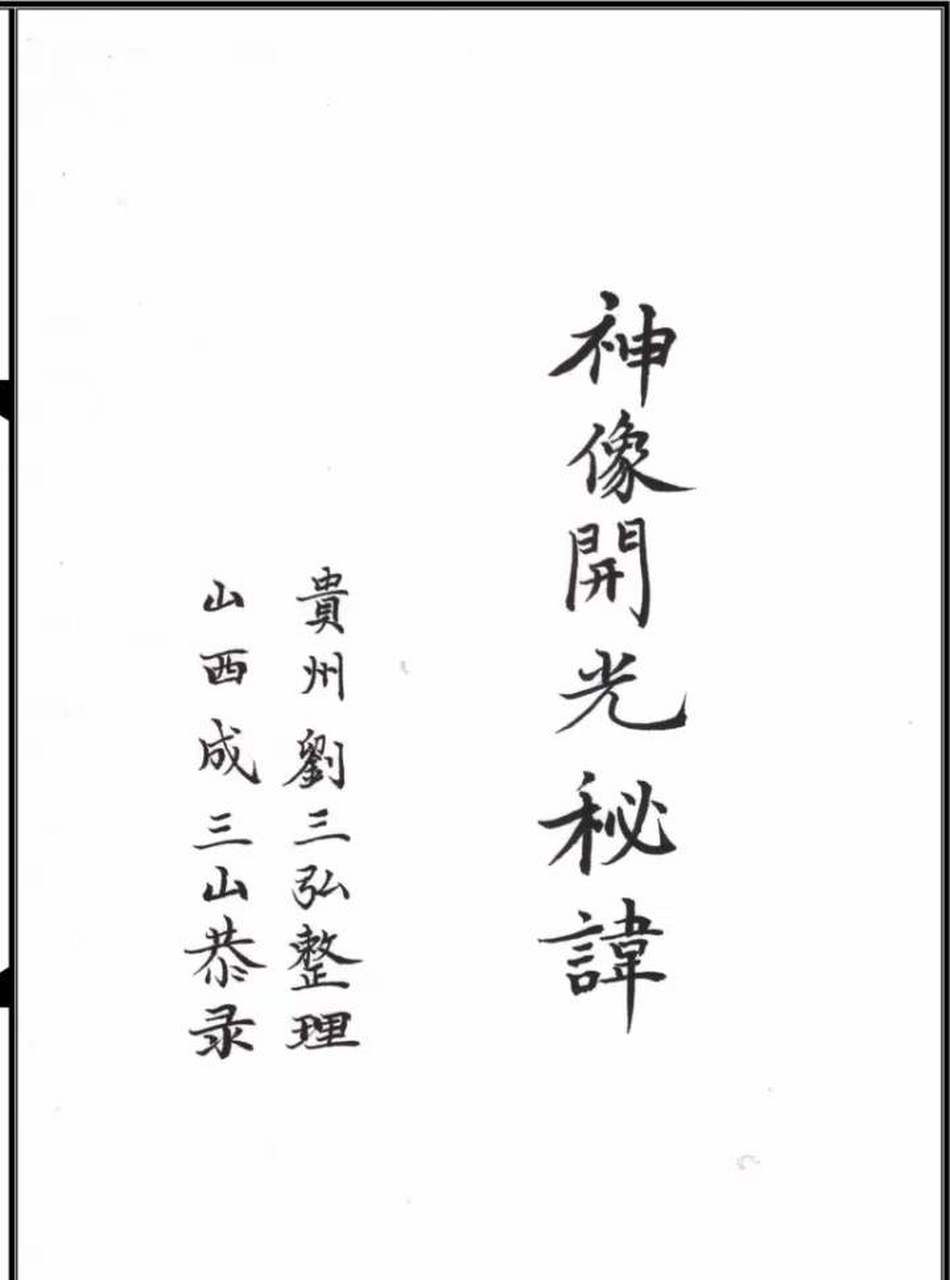 神像開光秘諱
貴州劉三弘整理
山西成三山恭录